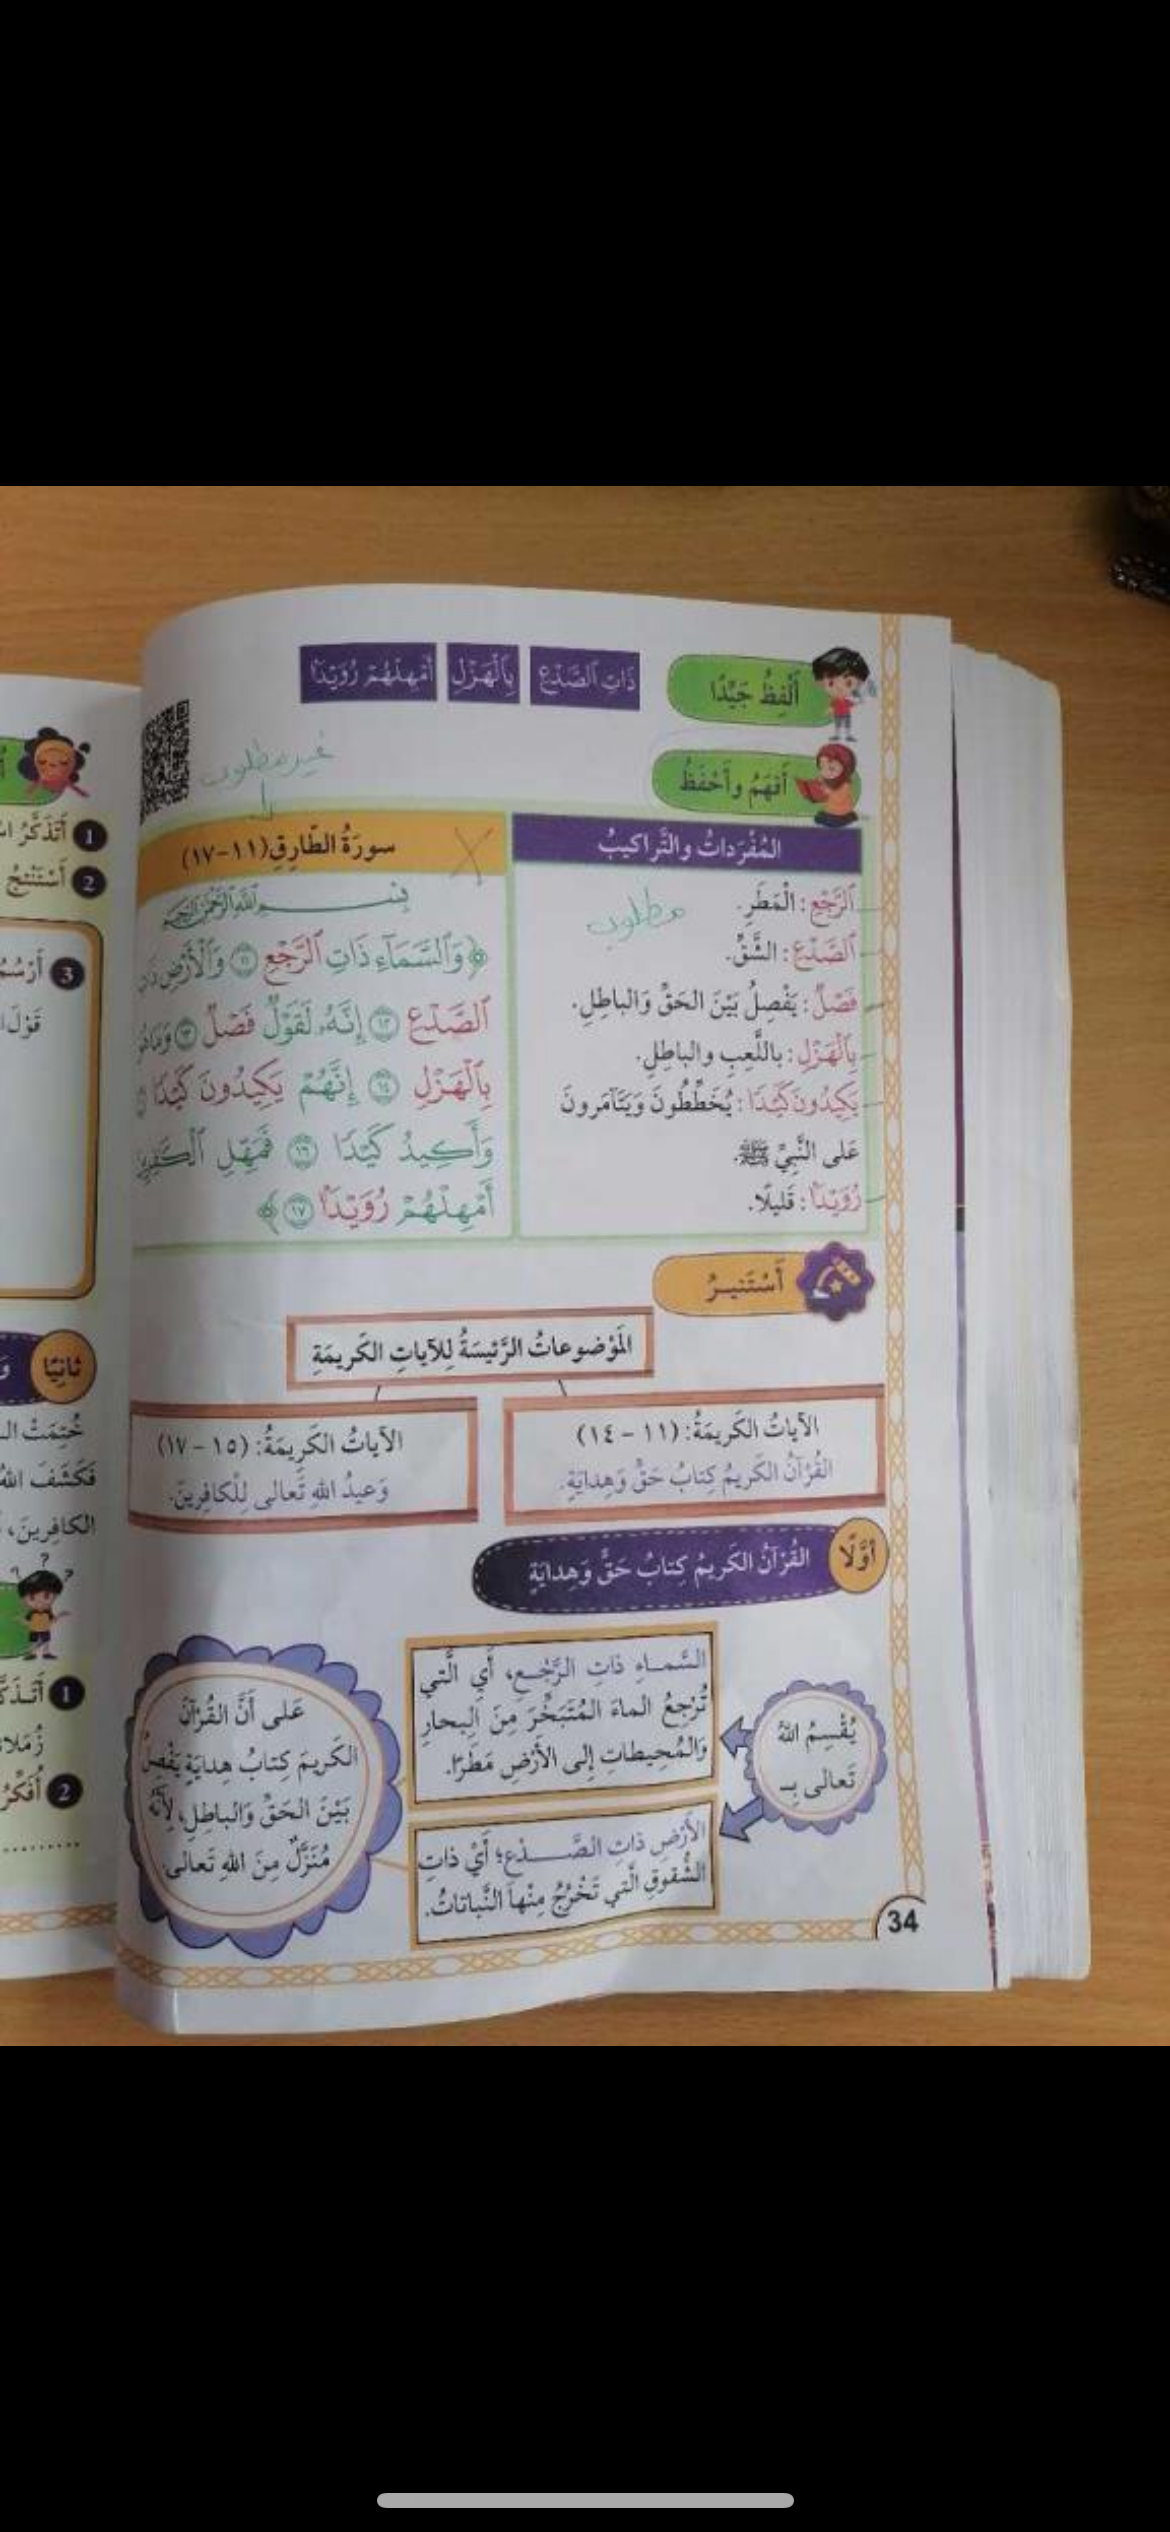 أَلْفِظُ جَيِّدًا
ذَاتِ ٱلصَّدْعِ
بِٱلْهَزْلِ
أَمْهِلْهُمْ رُوَيْدًا
أَفهَمُ وأَحْفَظُ
غير مطلوب
المُفْرَداتُ والتَّراكيبُ
مطلوب
ٱلرَّجْعِ: الْمَطَرِ.
ٱلصَّدْعِ: الشَّقِّ.
فَصْلٌ: يَفْصِلُ بَيْنَ الحَقِّ وَالباطِلِ.
بِٱلْهَزْلِ: باللَّعِبِ والباطِلِ.
يَكِيدُونَ كَيْدًا: يُخَطِّطُونَ وَيَتَآمَرونَ
عَلى النَّبِيِّ ﷺ.
رُوَيْدًا: قَليلًا.
سورَةُ الطّارِقِ (١١-١٧)
بِسْمِ ٱللَّهِ ٱلرَّحْمَٰنِ ٱلرَّحِيمِ
﴿وَٱلسَّمَآءِ ذَاتِ ٱلرَّجْعِ ١١ وَٱلْأَرْضِ
ٱلصَّدْعِ ١٢ إِنَّهُۥ لَقَوْلٌ فَصْلٌ ١٣
بِٱلْهَزْلِ ١٤ إِنَّهُمْ يَكِيدُونَ كَيْدًا
وَأَكِيدُ كَيْدًا ١٦ فَمَهِّلِ
أَمْهِلْهُمْ رُوَيْدًا ١٧﴾
أَسْتَنيرُ
المَوْضوعاتُ الرَّئيسَةُ لِلآياتِ الكَريمَةِ
الآياتُ الكَريمَةُ: (١١ - ١٤)
القُرْآنُ الكَريمُ كِتابُ حَقٍّ وَهِدايَةٍ.
الآياتُ الكَريمَةُ: (١٥ - ١٧)
وَعيدُ اللهِ تَعالى لِلْكافِرينَ.
أَوَّلًا
القُرْآنُ الكَريمُ كِتابُ حَقٍّ وَهِدايَةٍ
يُقْسِمُ اللهُ
تَعالى بِـ
السَّمـاءِ ذاتِ الرَّجْعِ، أَيِ الَّتي
تُرْجِعُ الماءَ المُتَبَخِّرَ مِنَ البِحارِ
وَالمُحيطاتِ إِلى الأَرْضِ مَطَرًا.
الأَرْضِ ذاتِ الصَّـــدْعِ؛ أَيْ ذاتِ
الشُّقوقِ الَّتي تَخْرُجُ مِنْها النَّباتاتُ.
عَلى أَنَّ القُرْآنَ
الكَريمَ كِتابُ هِدايَةٍ يَفْصِلُ
بَيْنَ الحَقِّ وَالباطِلِ، لِأَنَّهُ
مُنَزَّلٌ مِنَ اللهِ تَعالى.
34
1 أَتَذَكَّرُ
2 أَسْتَنْتِجُ
3
ثانِيًا
خُتِمَتْ
فَكَشَفَ اللهُ
الكافِرينَ،
1
2 أُفَكِّرُ